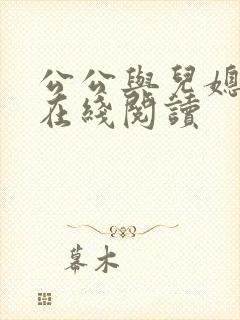 公公與兒媳
在綫閱讀
幕木